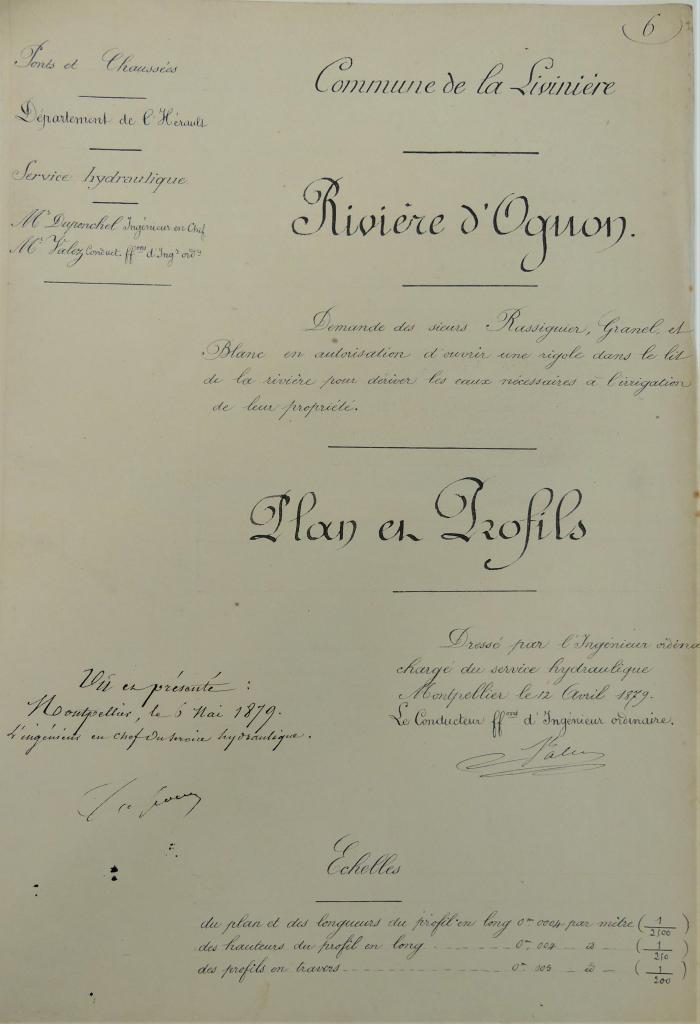 6
Ponts et Chaussées
Département de l'Hérault
Service hydraulique
Mr Duponchel Ingénieur en Chef
Mr Valez Conduct. ffons d'Ingr ordre
Commune de la Livinière
Rivière d'Ognon.
Demande des sieurs Rassiguier, Granel, et
Blanc en autorisation d'ouvrir une rigole dans le lit
de la rivière pour dériver les eaux nécessaires à l'irrigation
de leur propriété.
Plan et Profils
Dressé par l'Ingénieur ordina
chargé du service hydraulique
Montpellier le 12 Avril 1879.
Le Conducteur ffons d'Ingénieur ordinaire.
Vu et présenté :
Montpellier, le 6 Mai 1879.
L'ingénieur en chef du service hydraulique.
Echelles
du plan et des longueurs du profil en long 0m 0004 par mètre (1/2500)
des hauteurs du profil en long 0m 004 à (1/250)
des profils en travers 0m 005 à (1/200)